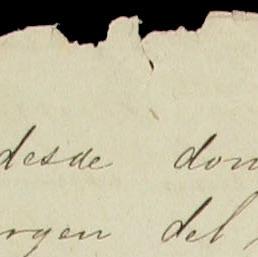 desde don
rgen del